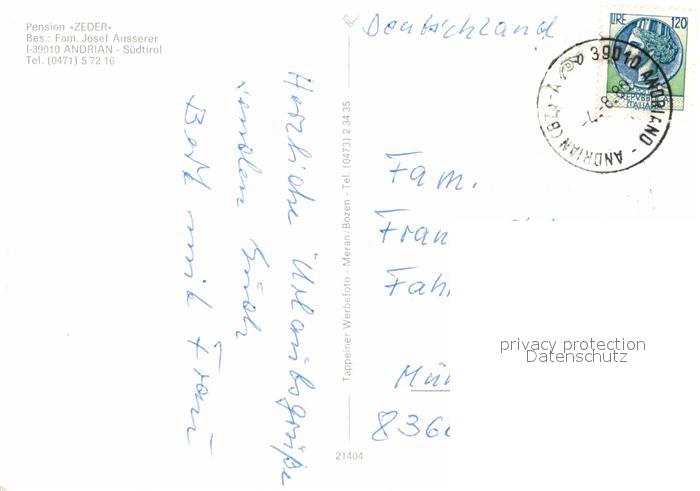 Pension «ZEDER»
Bes.: Fam. Josef Ausserer
I-39010 ANDRIAN - Südtirol
Tel. (0471) 5 72 16
Herzliche Urlaubsgrüße
senden Euch
mit Frau
Tappeiner Werbefoto - Meran/Bozen - Tel. (0473) 2 34 35
21404
Deutschland
LIRE 120
REPUBBLICA
ITALIANA
39010 ANDRIANO - ANDRIAN (BZ) - A
Fam.
Fran
Fah
Mün
836
privacy protection
Datenschutz